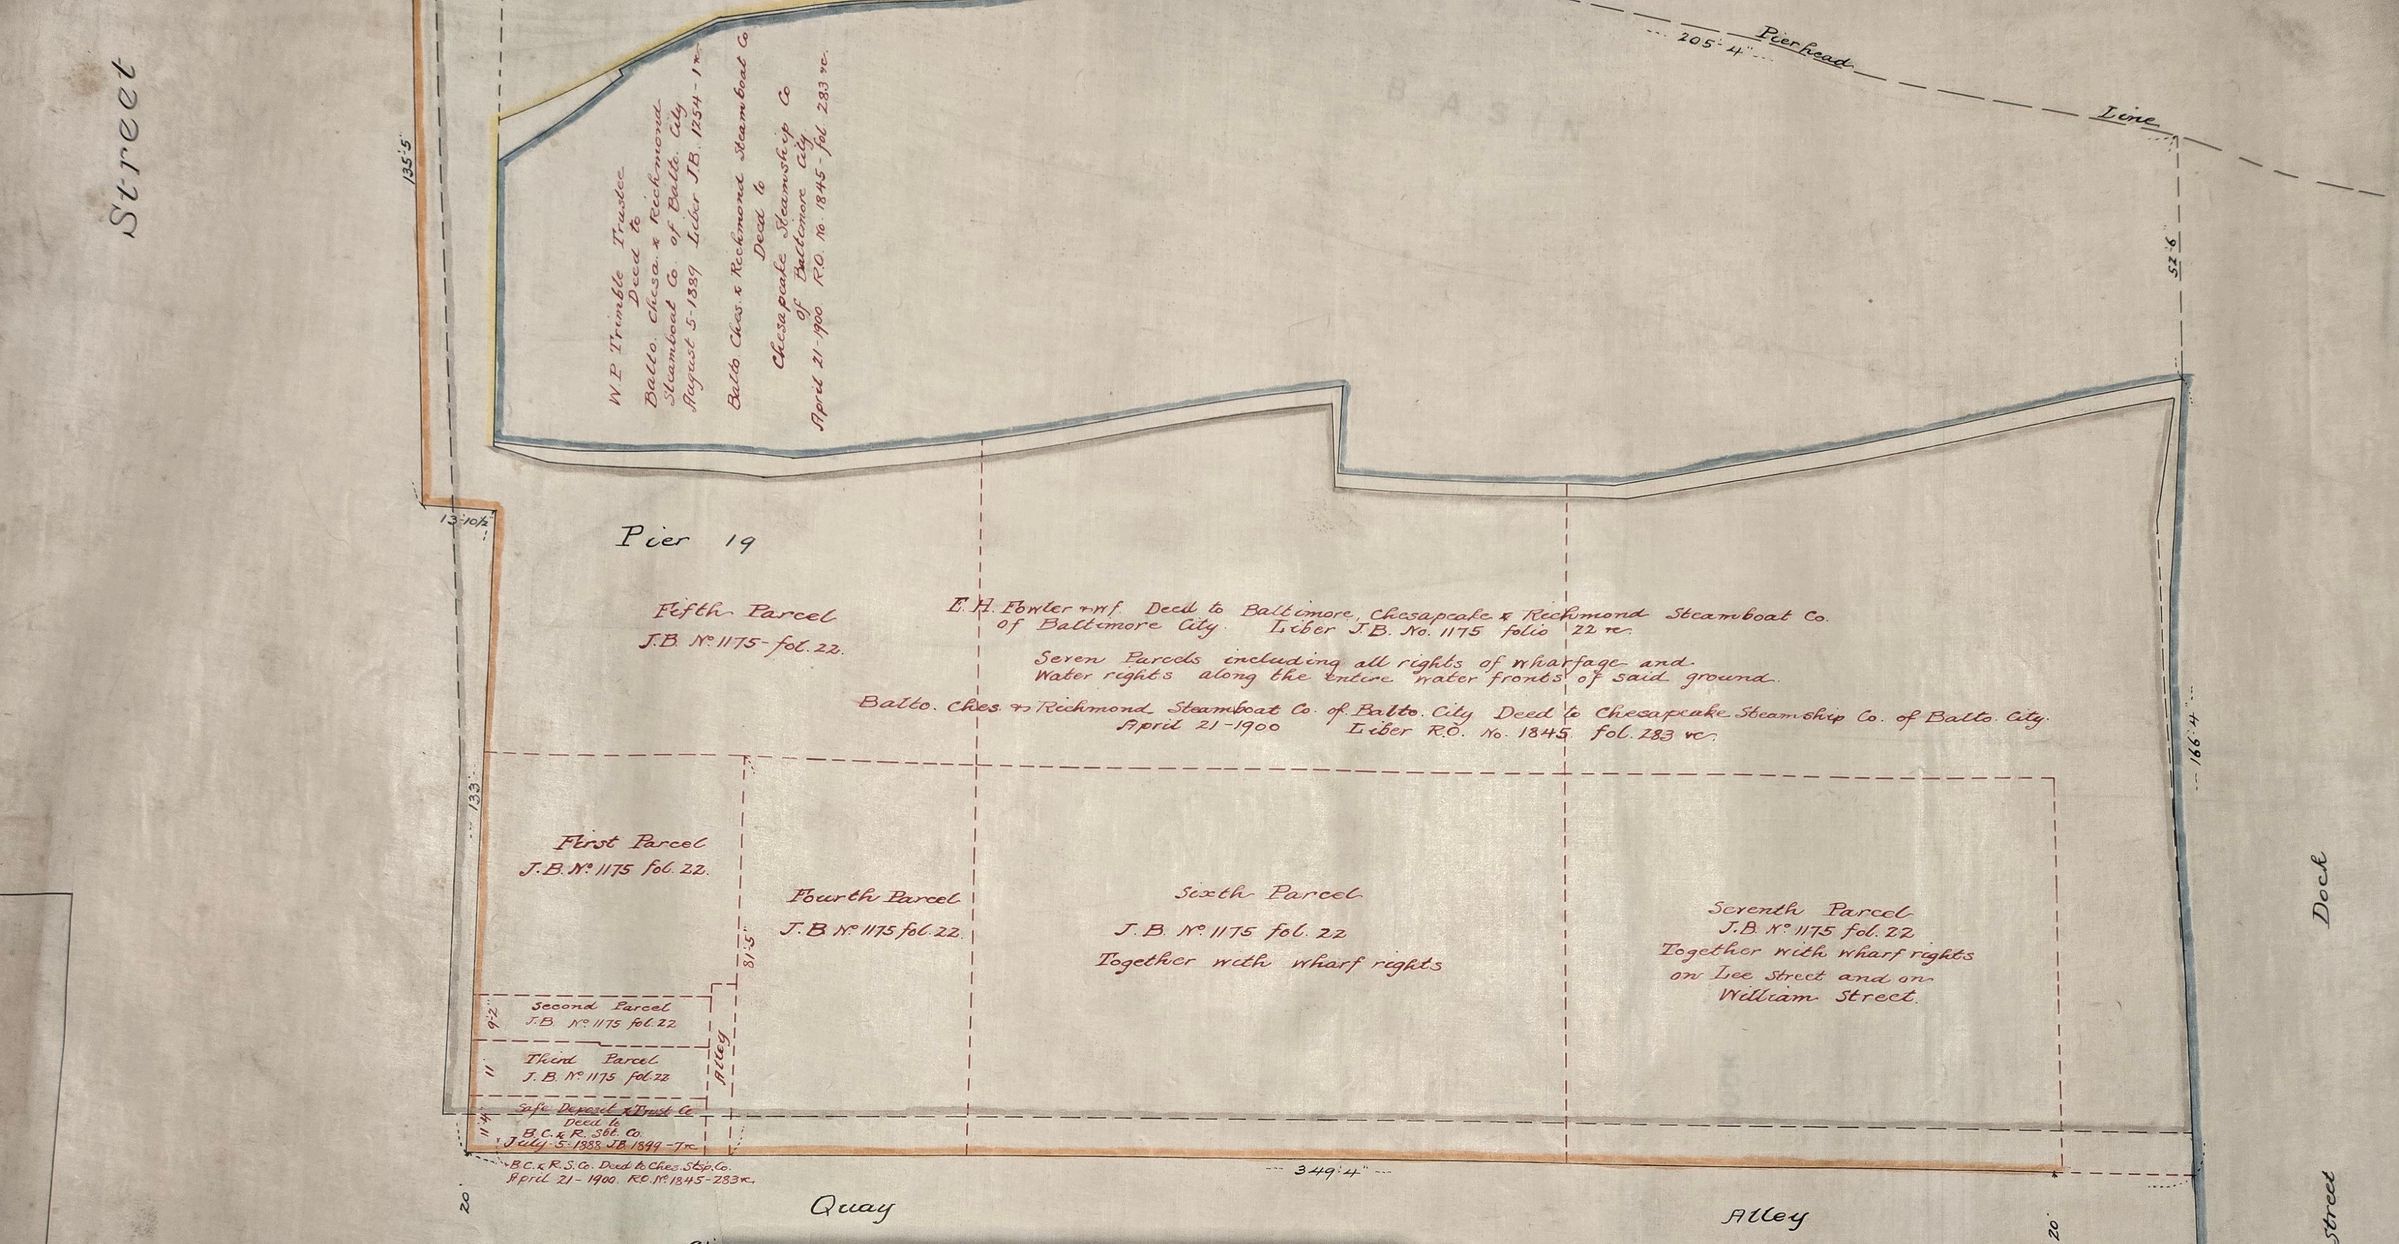 Street
135'5
Pierhead
205'-4"
Line
BASIN
52'-6"
W.P. Trimble Trustee
Deed to
Balto. Chesa. & Richmond
Steamboat Co. of Balto. City
August 5-1889 Liber J.B. 1254-1 rc
Balto Ches. & Richmond Steamboat Co
Deed to
Chesapeake Steamship Co
of Baltimore City
April 21-1900 R.O. No. 1845-fol. 283 rc.
13'-10½"
Pier 19
Fifth Parcel
J.B. No 1175-fol. 22.
E.H. Fowler & wf. Deed to Baltimore, Chesapeake & Richmond Steamboat Co.
of Baltimore City. Liber J.B. No. 1175 folio 22 rc.
Seven Parcels including all rights of wharfage and
Water rights along the entire water fronts of said ground.
Balto. Ches. & Richmond Steamboat Co. of Balto. City Deed to Chesapeake Steamship Co. of Balto. City.
April 21-1900 Liber R.O. No. 1845 fol. 283 rc.
133'
166'-4"
First Parcel
J.B. No 1175 fol. 22.
Fourth Parcel
J.B. No 1175 fol. 22.
81'-5"
Sixth Parcel
J.B. No 1175 fol. 22
Together with wharf rights
Seventh Parcel
J.B. No 1175 fol. 22
Together with wharf rights
on Lee Street and on
William Street.
Dock
Second Parcel
J.B. No 1175 fol. 22
9'-2"
Third Parcel
J.B. No 1175 fol. 22
11
Alley
Safe Deposit & Trust Co
Deed to
B.C. & R. Sbt. Co.
July 5-1888 J.B. 1899-7 rc
11'-4"
B.C. & R.S. Co. Deed to Ches. Stsp. Co.
April 21-1900. R.O. No 1845-283 rc.
349'-4"
20'
Quay
Alley
20'
Street